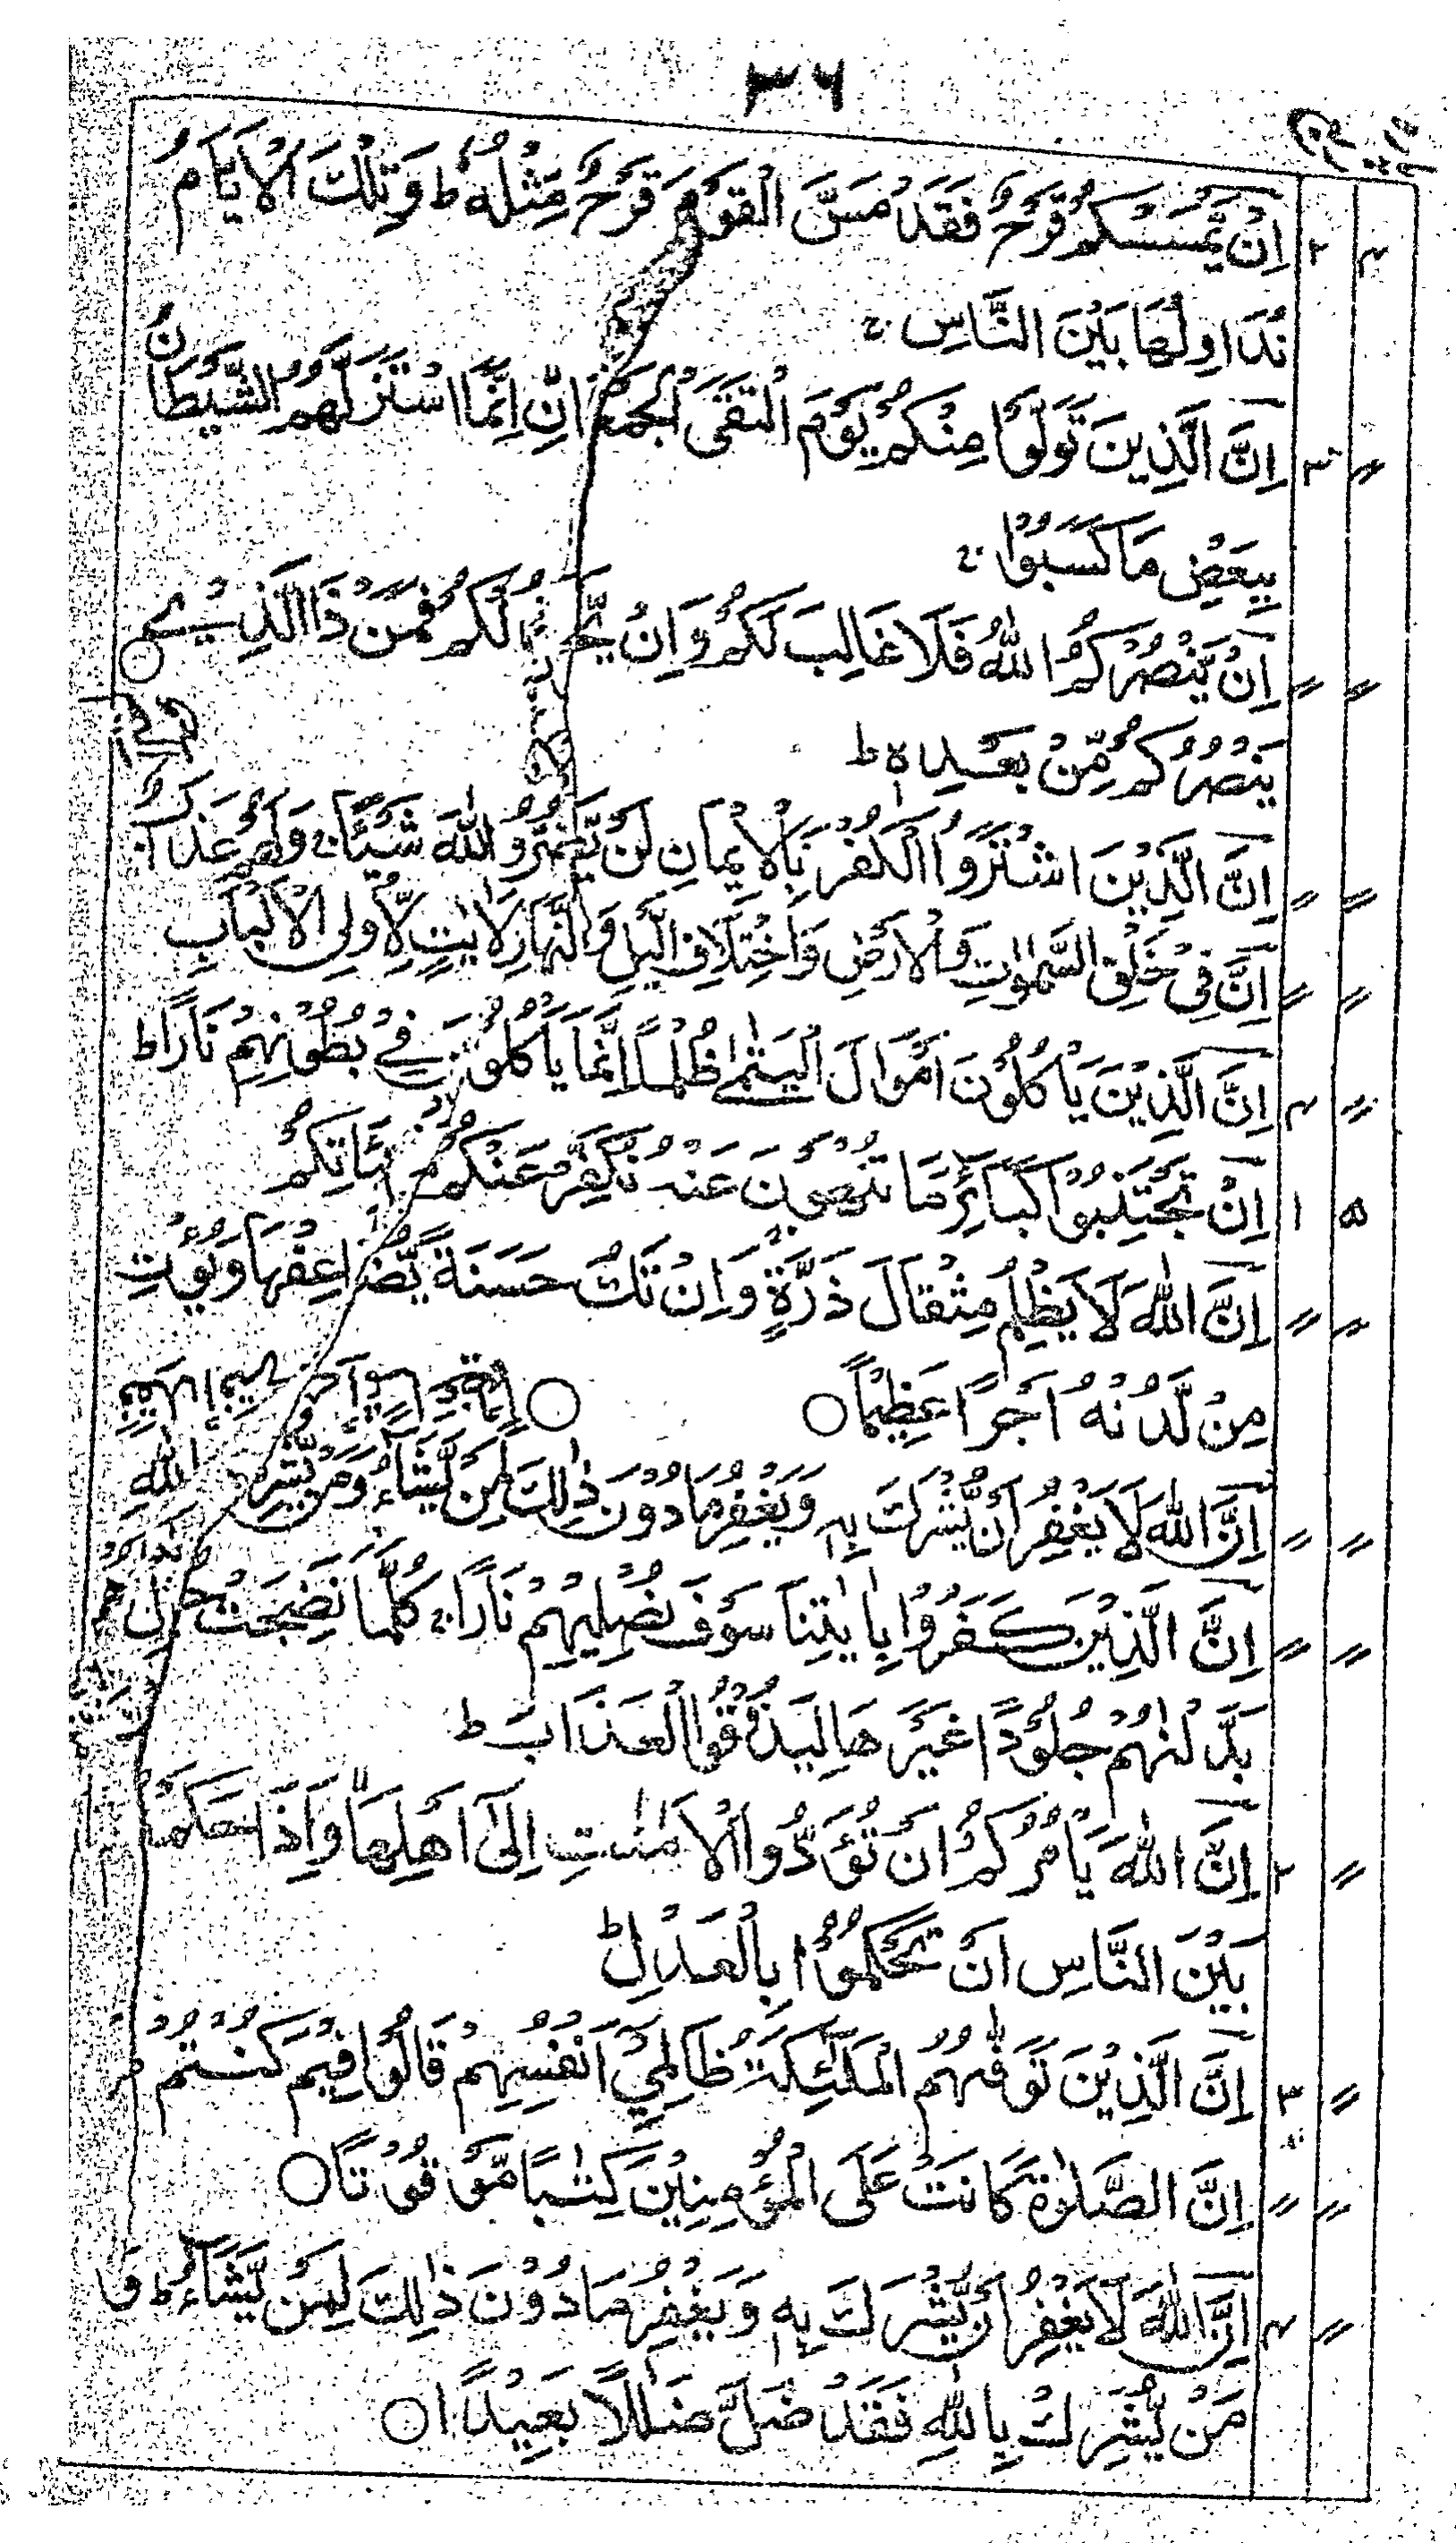 ۳۶
۴ ۲ اِنْ يَّمْسَسْكُمْ قَرْحٌ فَقَدْ مَسَّ الْقَوْمَ قَرْحٌ مِّثْلُهٗ ط وَتِلْكَ الْاَيَّامُ
نُدَاوِلُهَا بَيْنَ النَّاسِ ج
〃 ۳ اِنَّ الَّذِيْنَ تَوَلَّوْا مِنْكُمْ يَوْمَ الْتَقَى الْجَمْعٰنِ اِنَّمَا اسْتَزَلَّهُمُ الشَّيْطَانُ
بِبَعْضِ مَا كَسَبُوْا ج
〃 〃 اِنْ يَّنْصُرْكُمُ اللّٰهُ فَلَا غَالِبَ لَكُمْ وَاِنْ لَكُمْ فَمَنْ ذَا الَّذِيْ
يَنْصُرُكُمْ مِّنْ بَعْدِهٖ ط
〃 〃 اِنَّ الَّذِيْنَ اشْتَرَوُا الْكُفْرَ بِالْاِيْمَانِ لَنْ يَّضُرُّوا اللّٰهَ شَيْئًا ج وَلَهُمْ عَذَابٌ
〃 〃 اِنَّ فِيْ خَلْقِ السَّمٰوٰتِ وَالْاَرْضِ وَاخْتِلَافِ الَّيْلِ وَالنَّهَارِ لَاٰيٰتٍ لِّاُولِى الْاَلْبَابِ
〃 ۴ اِنَّ الَّذِيْنَ يَاْكُلُوْنَ اَمْوَالَ الْيَتٰمٰى ظُلْمًا اِنَّمَا يَاْكُلُوْنَ فِيْ بُطُوْنِهِمْ نَارًا ط
۵ ۱ اِنْ تَجْتَنِبُوْا كَبَآئِرَ مَا تُنْهَوْنَ عَنْهُ نُكَفِّرْ عَنْكُمْ سَيِّاٰتِكُمْ
〃 〃 اِنَّ اللّٰهَ لَا يَظْلِمُ مِثْقَالَ ذَرَّةٍ ج وَاِنْ تَكُ حَسَنَةً يُّضَاعِفْهَا وَيُؤْتِ
مِنْ لَّدُنْهُ اَجْرًا عَظِيْمًا ○
〃 〃 اِنَّ اللّٰهَ لَا يَغْفِرُ اَنْ يُّشْرَكَ بِهٖ وَيَغْفِرُ مَا دُوْنَ ذٰلِكَ لِمَنْ يَّشَآءُ وَمَنْ يُّشْرِكْ بِاللّٰهِ
〃 〃 اِنَّ الَّذِيْنَ كَفَرُوْا بِاٰيٰتِنَا سَوْفَ نُصْلِيْهِمْ نَارًا ج كُلَّمَا نَضِجَتْ جُلُوْدُهُمْ
بَدَّلْنٰهُمْ جُلُوْدًا غَيْرَهَا لِيَذُوْقُوا الْعَذَابَ ط
〃 ۲ اِنَّ اللّٰهَ يَاْمُرُكُمْ اَنْ تُؤَدُّوا الْاَمٰنٰتِ اِلٰٓى اَهْلِهَا وَاِذَا حَكَمْتُمْ
بَيْنَ النَّاسِ اَنْ تَحْكُمُوْا بِالْعَدْلِ ط
〃 ۳ اِنَّ الَّذِيْنَ تَوَفّٰهُمُ الْمَلٰٓئِكَةُ ظَالِمِيْ اَنْفُسِهِمْ قَالُوْا فِيْمَ كُنْتُمْ
〃 〃 اِنَّ الصَّلٰوةَ كَانَتْ عَلَى الْمُؤْمِنِيْنَ كِتٰبًا مَّوْقُوْتًا ○
〃 ۴ اِنَّ اللّٰهَ لَا يَغْفِرُ اَنْ يُّشْرَكَ بِهٖ وَيَغْفِرُ مَا دُوْنَ ذٰلِكَ لِمَنْ يَّشَآءُ ط وَ
مَنْ يُّشْرِكْ بِاللّٰهِ فَقَدْ ضَلَّ ضَلٰلًا بَعِيْدًا ○